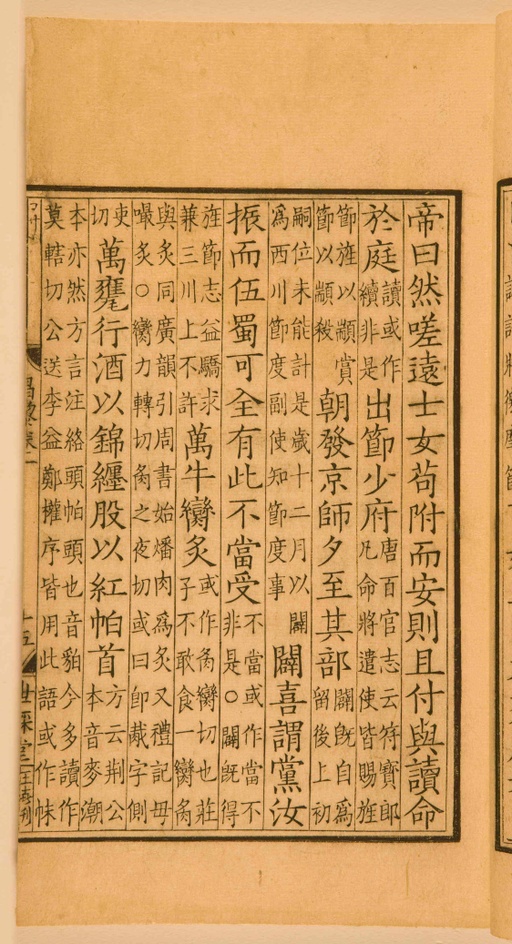 帝曰然嗟遠士女苟附而安則且付與讀命
於庭讀或作續非是出節少府唐百官志云符寶郎凡命將遣使皆賜旌
節旌以顓賞節以顓殺朝發京師夕至其部闢旣自爲留後上初
嗣位未能計是歲十二月以闢爲西川節度副使知節度事闢喜謂黨汝
振而伍蜀可全有此不當受不當或作當不非是○闢旣得
旌節志益驕求兼三川上不許萬牛臠炙或作臠切也莊子不敢食一臠
與炙同廣韻引周書始燔肉爲炙又禮記毋嘬炙○臠力轉切之夜切或曰卽胾字側
吏切萬甕行酒以錦纏股以紅帕首方云荆公本音麥潮
本亦然方言注絡頭帕頭也音貊今多讀作莫轄切公送李益鄭權序皆用此語或作帓
昌黎卷一
十五
世綵堂